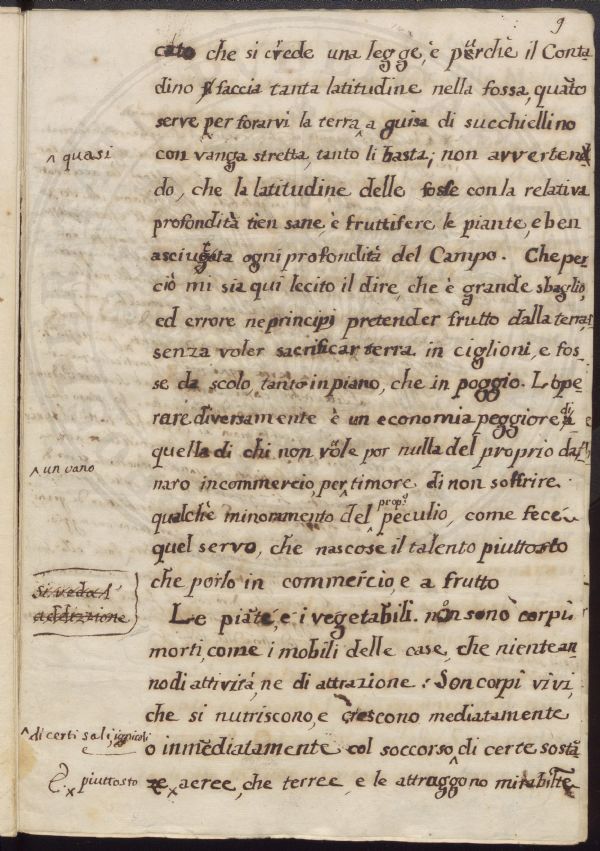 9
cato che si crede una legge, è perchè il Conta-
dino si faccia tanta latitudine nella fossa, quãto
serve per forarvi la terra ^ a guisa di succhiellino
^ quasi
con vanga stretta, tanto li basta; non avverten-
do, che la latitudine delle fosse con la relativa
profondità tien sane, è fruttifere le piante, e ben
asciugata ogni profondità del Campo. Che per-
ciò mi sia qui lecito il dire, che è grande sbaglio,
ed errore ne principj pretender frutto dalla terra,
senza voler sacrificar terra in ciglioni, e fos-
se da scolo, tanto in piano, che in poggio. L'ope-
rare diversamente è un economia peggiore di
quella di chi non vole por nulla del proprio da-
^ un vano
naro in commercio, per ^ timore di non soffrire
qualchè minoramento del ^ prop.º peculio, come fece
quel servo, che nascose il talento piuttosto
che porlo in commercio, e a frutto
Si veda l'
additione
Le piãte, e i vegetabili non sono corpi
morti, come i mobili delle case, che niente an-
no di attività, ne di attrazione: Son corpi vivi,
che si nutriscono, e crescono mediatamente
^ di certi sali,
o inmediatamente col soccorso ^ di certe sostã-
x piuttosto
ze x aeree, che terree, e le attraggono mirabilte